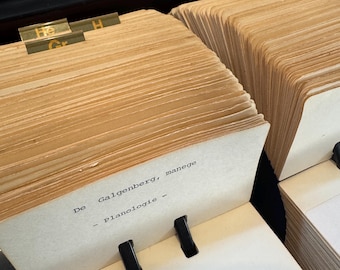 He
H
Gr
De Galgenberg, manege
- Planologie -